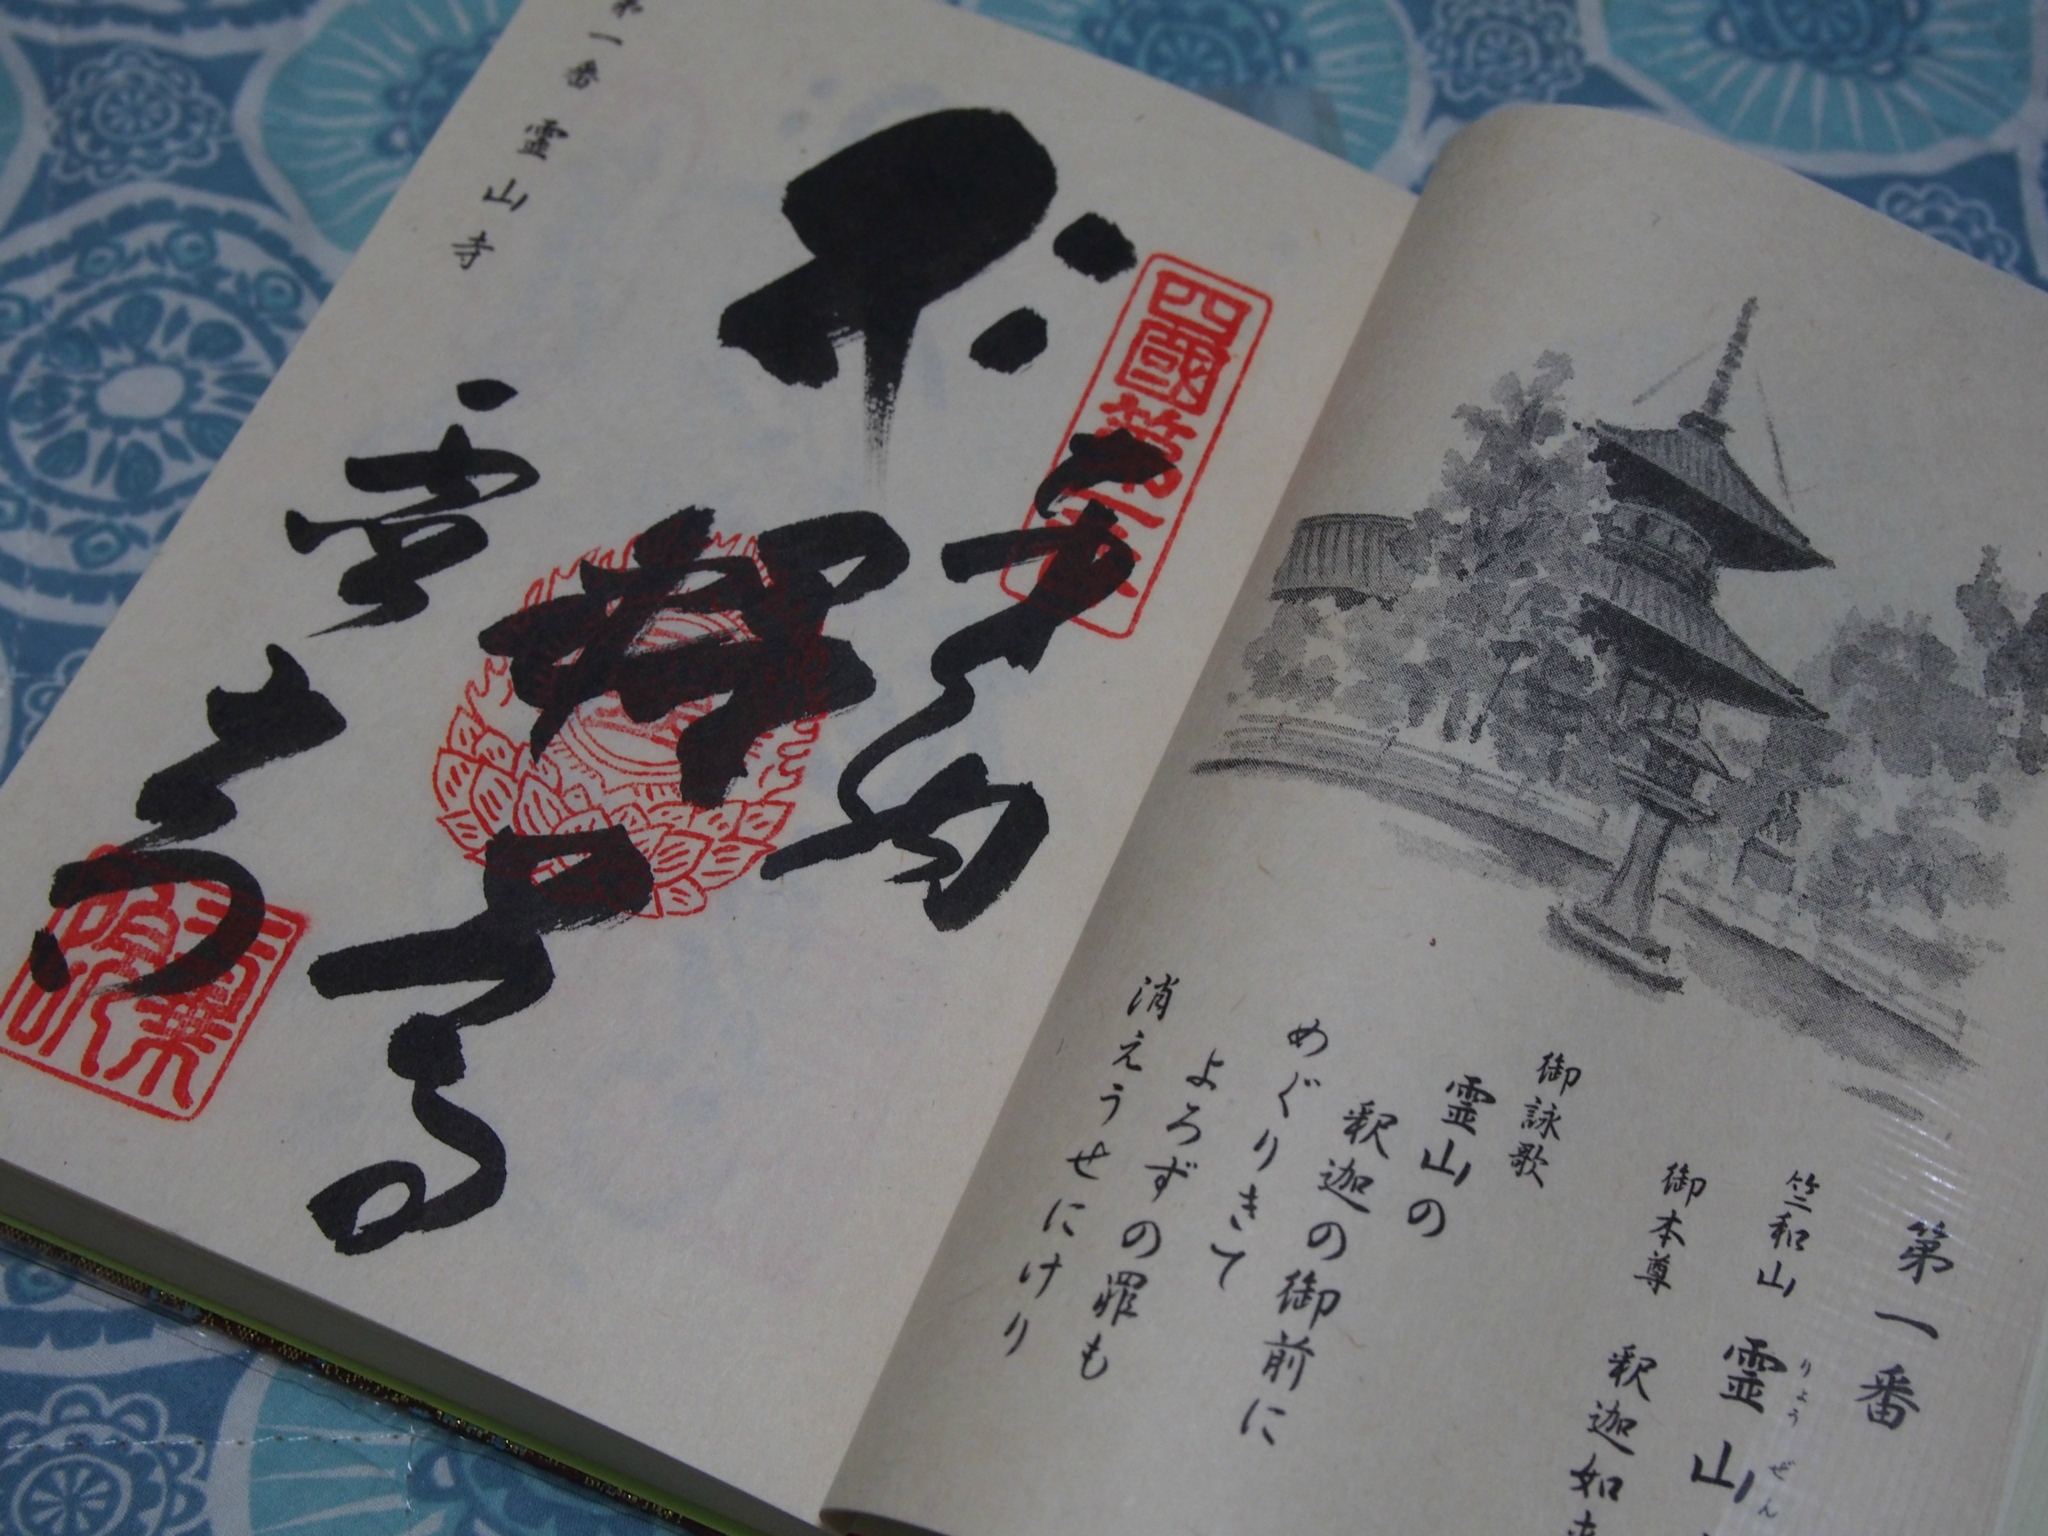 第一番
竺和山 霊山
りょうぜん
御本尊 釈迦如来
御詠歌
霊山の
釈迦の御前に
めぐりきて
よろずの罪も
消えうせにけり
四國第一番
奉納
釋迦尊
霊山寺
第一番 霊山寺